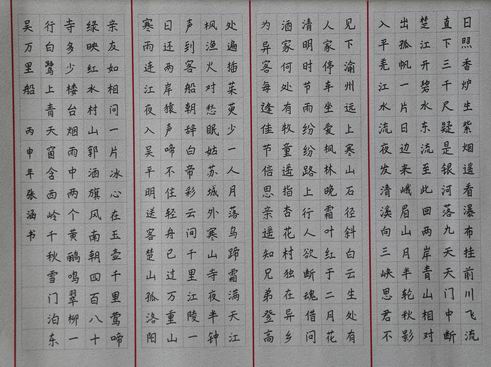 日照香炉生紫烟遥看瀑布挂前川飞流
直下三千尺疑是银河落九天天门中断
楚江开碧水东流至此回两岸青山相对
出孤帆一片日边来峨眉山月半轮秋影
入平羌江水流夜发清溪向三峡思君不
见下渝州远上寒山石径斜白云生处有
人家停车坐爱枫林晚霜叶红于二月花
清明时节雨纷纷路上行人欲断魂借问
酒家何处有牧童遥指杏花村独在异乡
为异客每逢佳节倍思亲遥知兄弟登高
处遍插茱萸少一人月落乌啼霜满天江
枫渔火对愁眠姑苏城外寒山寺夜半钟
声到客船朝辞白帝彩云间千里江陵一
日还两岸猿声啼不住轻舟已过万重山
寒雨连江夜入吴平明送客楚山孤洛阳
亲友如相问一片冰心在玉壶千里莺啼
绿映红水村山郭酒旗风南朝四百八十
寺多少楼台烟雨中两个黄鹂鸣翠柳一
行白鹭上青天窗含西岭千秋雪门泊东
吴万里船 丙申年张涵书